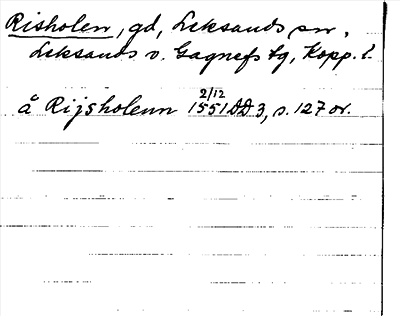 Risholen, gd, Leksands sn,
Leksands o. Gagnefs tg, Kopp. l.
2/12
å Rijsholenn 1551 DD 3, s. 127 or.